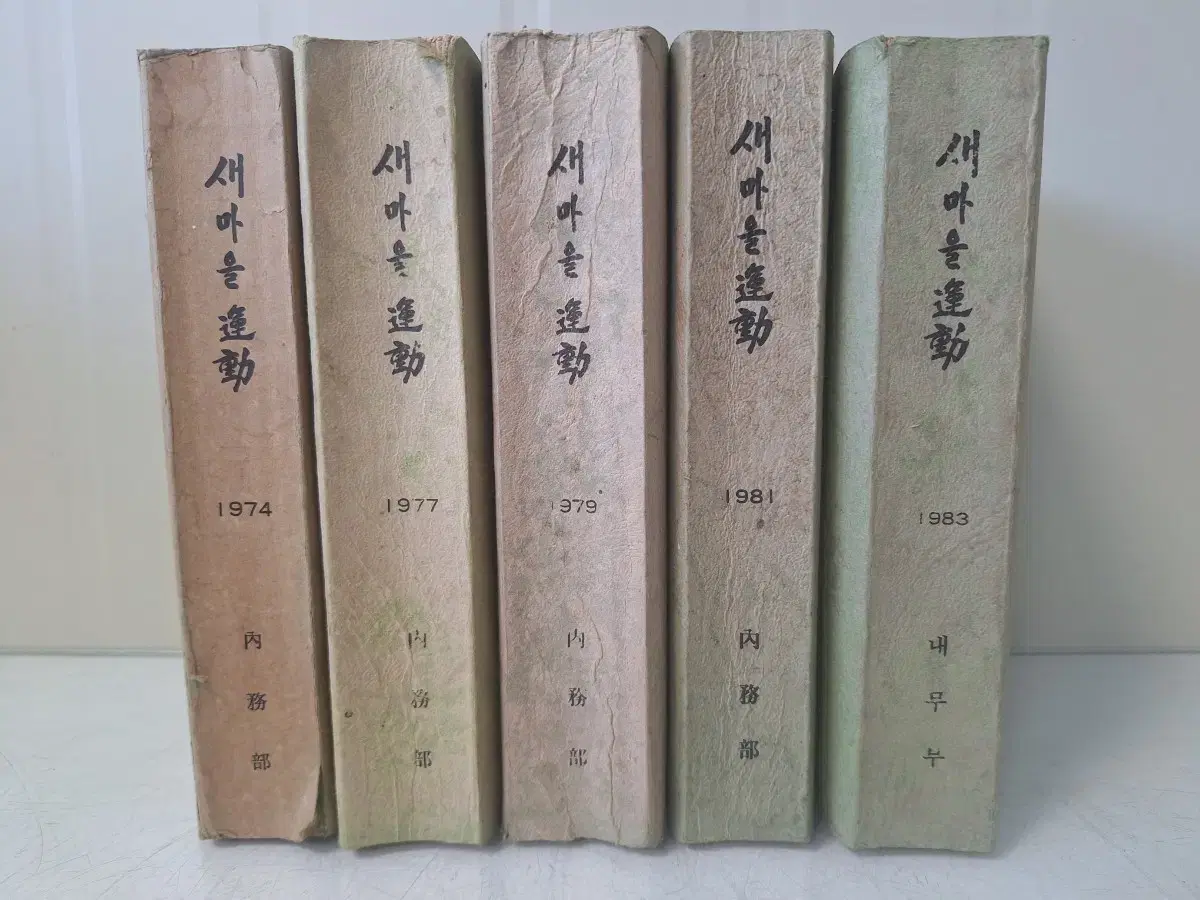 새마을運動
1974
內務部
새마을運動
1977
內務部
새마을運動
1979
內務部
새마을運動
1981
內務部
새마을運動
1983
내무부